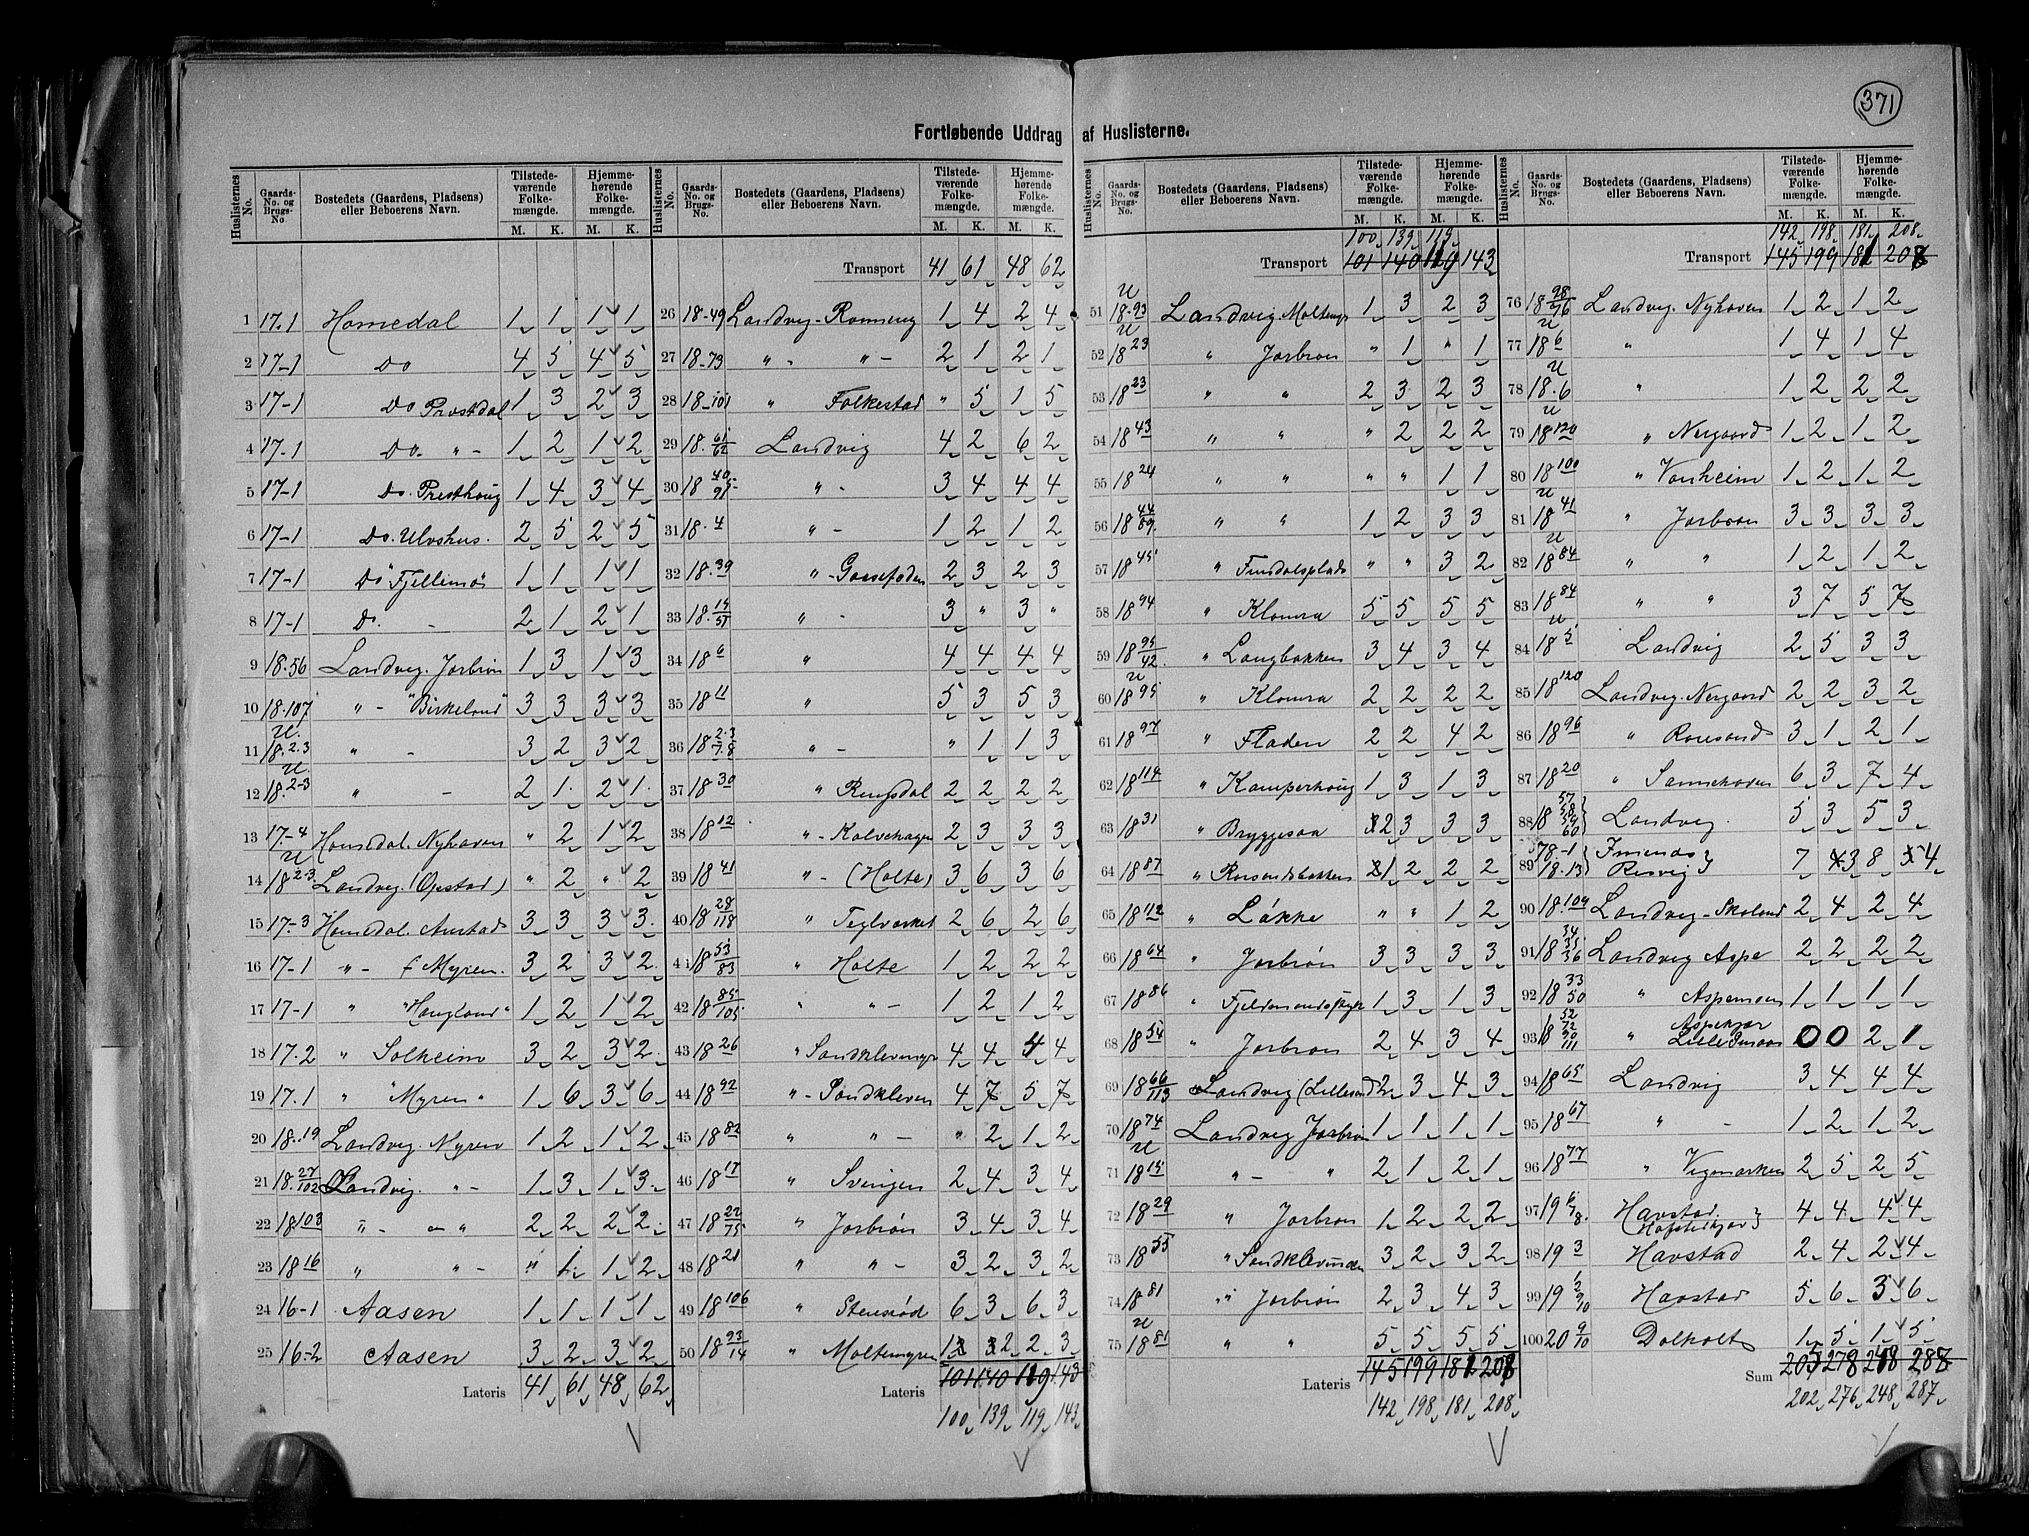 371
Fortløbende Uddrag af Huslisterne.
Huslisternes No. Gaards-No. og Brugs-No Bostedets (Gaardens, Pladsen) eller Beboerens Navn. Tilstedeværende Folkemængde. M. K. Hjemmehørende Folkemængde. M. K.
1 17.1 Homedal 1 1 1 1
2 17-1 Do 4 5 4 5
3 17-1 Do Prostdal 1 3 2 3
4 17-1 Do - " - 1 2 1 2
5 17-1 Do. Presthoug 1 4 3 4
6 17-1 Do. Ulvshus. 2 5 2 5
7 17-1 Do Fjellemo 1 1 1 1
8 17-1 Do. - 2 1 2 1
9 18.56 Landvig. Jorbron 1 3 1 3
10 18.107 " - "Birkelund" 3 3 3 3
11 u. 18.2.3 " - 3 2 3 2
12 u 18.2-3 " - 2 1 2 1
13 17-4 Homedal. Nyhaven " 2 1 2
14 u 18 2-3. Landvig. (Opstad) " 2 " 2
15 17-3 Homdal. Aurstad 3 3 3 3
16 17-1 "- f Myren. 3 2 3 2
17 17-1 " "Haugland" 1 2 1 2
18 17.2 " Solheim 3 2 3 2
19 17.1 " "Myren" 1 6 3 6
20 18.19 Landvig. Myren 1 2 1 2
21 18.27/102 Landvig. " - 1 3 1 3
22 18 103 " - - " 2 2 2 2
23 18 16 " " - " 1 1 2
24 16-1 Aasen 1 1 1 1
25 16-2 Aasen 3 2 3 2
Lateris 41 61 48 62
Transport 41 61 48 62
26 18-49 Landvig - Ronneng 1 4 2 4
27 18-73 " - " - 2 1 2 1
28 18-101 " Folkestad " 5 1 5
29 18.61/62 Landvig 4 2 6 2
30 18 40/95 " - 3 4 4 4
31 18.4 " - 1 2 1 2
32 18.39 " - Gaasefoden 2 3 2 3
33 18.15/51 " - 3 " 3 "
34 18 6 " 4 4 4 4
35 18 11 " 5 3 5 3
36 18 2.3/7.8 " - " 1 1 3
37 18 30 " Rugsdal 2 2 2 2
38 18 12 " - Kalvehagen 2 3 3 3
39 18 41 " - (Holte) 3 6 3 6
40 18 28/118 " Teglverket 2 6 2 6
41 18 53/83 " Holte 1 2 2 2
42 18 85/105 " " - 1 2 1 2
43 18 26 " Sandklevmyr 4 4 4 4
44 18 92 " - Sandkleven 4 7 5 7
45 18 82 " " - " 2 1 2
46 18 17 " Svingen 2 4 3 4
47 18 22/75 " Jorbron 3 4 3 4
48 18 21 " " - 3 2 3 2
49 18 106 " Stensrød 6 3 6 3
50 18 93/14 " Moltemyren 1 2 2 3
Lateris 101 140 119 143
100 139 119 143
100 139 119
Transport 101 140 119 143
51 u 18-93 Landvig. Moltemyr 1 3 2 3
52 u 18 23 " Jorbron " 1 " 1
53 18 23 " " 2 3 2 3
54 18 43 " " " 2 2 2
55 18 24 " " " " 1 1
56 18 44/89 " " 1 2 3 3
57 18 45 " Finsdalsplads " " 3 2
58 18 94 " Klomra 5 5 5 5
59 18 95/42. " Langbakken 3 4 3 4
60 u 18 95 " Klomra 2 2 2 2
61 18 97 " Fladen 2 2 4 2
62 18 114 " Kamperhoug 1 3 1 3
63 18 31 " Bryggesaa 2 3 3 3
64 18 87 " Roresandsbakken 1 2 2 2
65 18 112 " Løkke " " 1 2
66 18 64 " Jorbron 3 3 3 3
67 18 86 " 1 3 1 3
68 18 54 " Jorbron 2 4 3 4
69 18 66/113 Landvig (Lillesand) 2 3 4 3
70 18 74 Landvig Jorbron 1 1 1 1
71 u 18 15 " - " 2 1 2 1
72 18 29 " Jorbron 1 2 2 2
73 18 55 " 3 2 3 2
74 18 81 " Jorbron 2 3 4 3
75 u 18 81 " " 5 5 5 5
Lateris 145 199 181 208
142 198 181 208
142 198 181 208
Transport 145 199 181 208
76 18 98/76 Landvig. Nyhaven 1 2 1 2
77 u 18 6 " 1 4 1 4
78 u 18.6 " 1 2 2 2
79 u 18 120 " Nergaard 1 2 1 2
80 18 100 " Vonheim 1 2 1 2
81 u 18 41 " Jorbron 3 3 3 3
82 u 18 84 " " 1 2 1 2
83 18 84 " " 3 7 5 7
84 u 18 5 Landvig 2 5 3 3
85 18 120 Landvig. Nergaard 2 2 3 2
86 18 96 " Roresand 3 1 2 1
87 18 20 " Sannehaven 6 3 7 4
88 18 57 58 59 60 } Landvig. 5 3 5 3
89 78-1 18.13 } Imenas Resvig } 7 3 8 4
90 18.109 Landvig - Skolend 2 4 2 4
91 18 34 35 36 Landvig Aspe 2 2 2 2
92 18 33/50 " Aspemoen 1 1 1 1
93 18 52 72 90 111 " Aspekjær Lille 0 0 2 1
94 18 65 Landvig 3 4 4 4
95 18 67 " - 1 2 1 2
96 18 77 " Vigmarken 2 5 2 5
97 19 6/78. Havstad. } 4 4 4 4
98 19 3 Havstad 2 4 2 4
99 19 2/90 Havstad 5 6 5 6
100 20 9/10 Dolholt 1 5 1 5
Sum 205 278 248 288
202 276 248 287